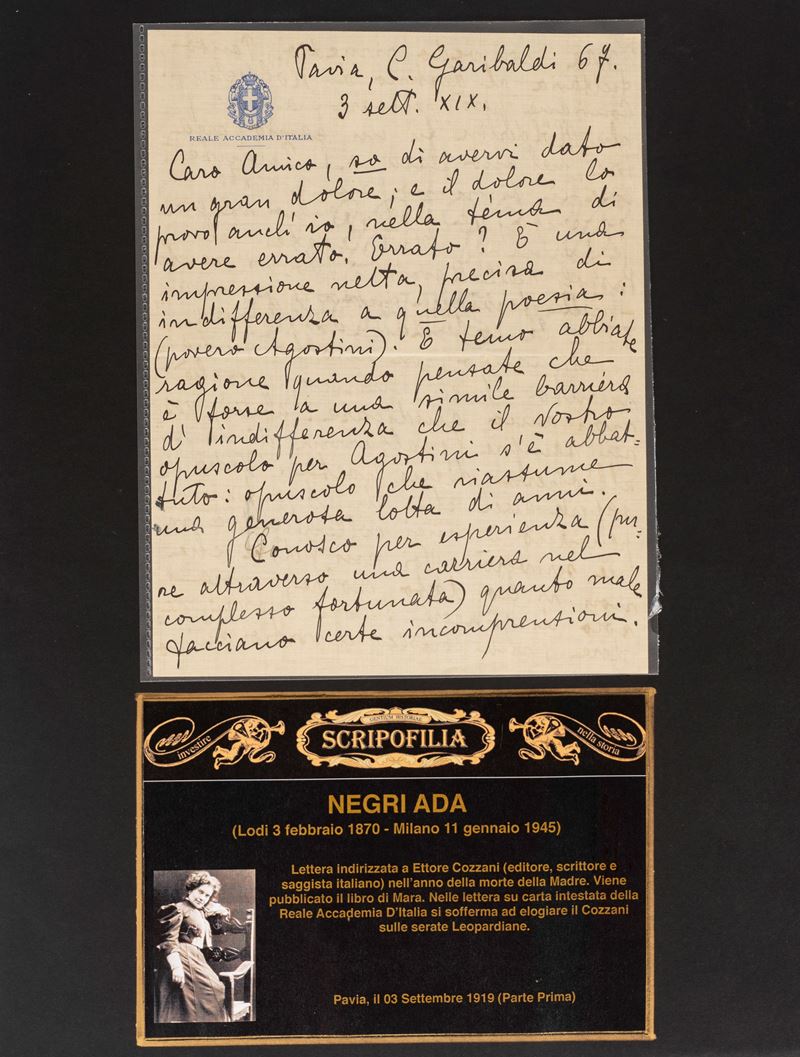 Pavia, C. Garibaldi 67.
3 sett. XIX.
REALE ACCADEMIA D'ITALIA
Caro Amico, so di avervi dato
un gran dolore; e il dolore lo
provo anch'io, nella téma di
avere errato. Errato? È una
impressione netta, precisa di
indifferenza a quella poesia:
(povero Agostini). E temo abbiate
ragione quando pensate che
è forse a una simile barriera
d'indifferenza che il vostro
opuscolo per Agostini s'è abbat=
tuto: opuscolo che riassume
una generosa lotta di anni.
Conosco per esperienza (pu=
re attraverso una carriera nel
complesso fortunata) quanto male
facciano certe incomprensioni.
investire
GENTIUM HISTORIAE
SCRIPOFILIA
nella storia
NEGRI ADA
(Lodi 3 febbraio 1870 - Milano 11 gennaio 1945)
Lettera indirizzata a Ettore Cozzani (editore, scrittore e
saggista italiano) nell'anno della morte della Madre. Viene
pubblicato il libro di Mara. Nelle lettera su carta intestata della
Reale Accademia D'Italia si sofferma ad elogiare il Cozzani
sulle serate Leopardiane.
Pavia, il 03 Settembre 1919 (Parte Prima)